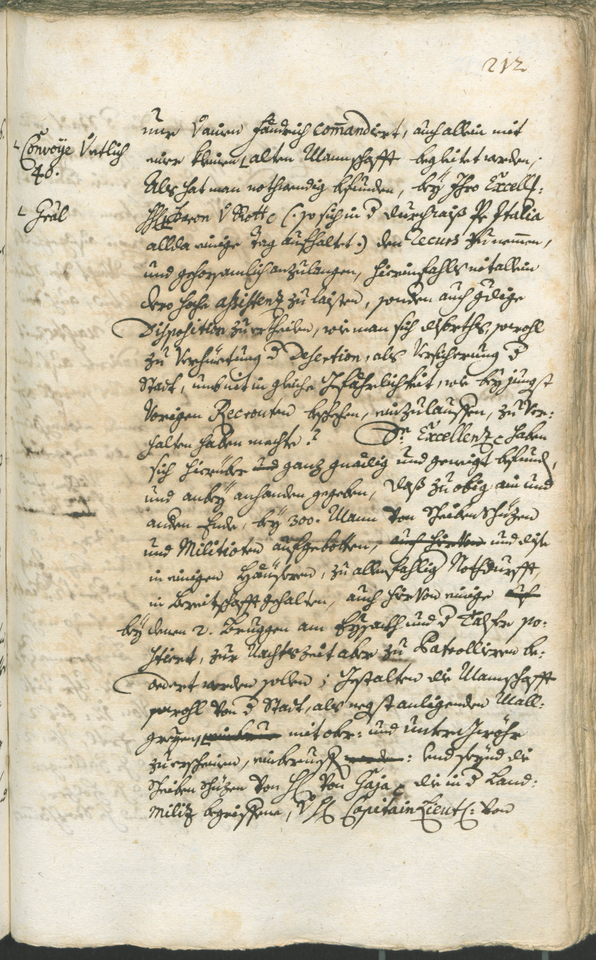 212
nur von einem Fändrich commandiert, auch allein mit
Convoye Velich
40.
einer kleinen alten Mannschafft begleitet werden,
Als hat man nothwendig befunden, bey Ihro Excell:
Gral
Baron v Rott (: so sich in d durchraiß Pr Italia
allda einige Tag aufhaltet :) den Recurs zu nemmen,
und gehorsamlich anzulangen, hierinfahls nit allein
dero hoche assistenz zu laisten, sonden auch güetige
Disposition zu ertheilen, wie man sich diserthalb, sowohl
zu Verhüettung d Desertion, als Versicherung d
Statt, umb nit in gleiche gefährlichkeit, wie bey jungst
Vorigen Recrouten beschehen, einzulauffen, zu Ver-
halten haben mechte? Sr Excellenz haben
sich hierüber ganz gnädig und geneigt befunden,
und anbey anhanden gegeben, daß zu obig ain und
anden Ende, bey 300. Mann von Scheibenschüzen
und Militioten aufgebotten, und dise
in einigen Häüseren, zu allenfahlig Nothdurfft,
in bereitschafft gehalten, auch hievon einige
bey denen 2. Bruggen am Eysackh und d Talfer po-
stiert, zur Nachtszeit aber zu Patrollieren be-
ordert werden sollen; gestalten die Mannschafft
sowohl von d Statt, als negst anligenden Mall-
greyen, mit ober- und unter Gewöhr
zu erscheinen, einberuefft: Und seynd die
Scheibenschüzen von H von Gaja, die in d Land-
miliz begriffene, v H Capitain Lieut: von